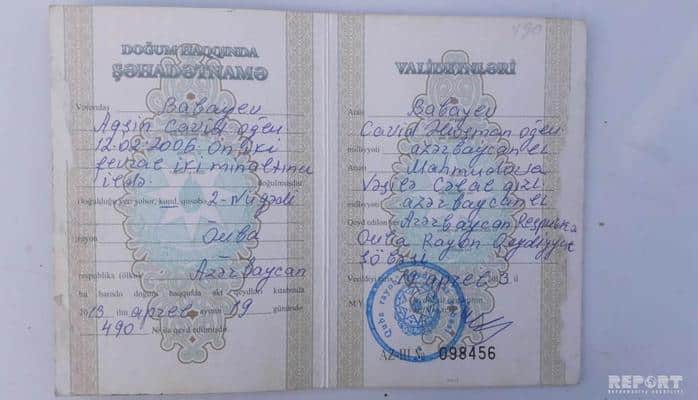 DOĞUM HAQQINDA
ŞƏHADƏTNAMƏ
Vətəndaş Babayev
Aqşin Cavid oğlu
12.02.2006. On iki
fevral iki min altıncı
ildə. doğulmuşdur
Doğulduğu yer: şəhər, kənd, qəsəbə 2-Nügədi
rayon Quba
respublika (ölkə) Azərbaycan
bu barədə doğum haqqında akt qeydləri kitabında
2013 ilin aprel ayının 19 günündə
490 №-lə qeyd edilmişdir
490
VALİDEYNLƏRİ
Atası Babayev
Cavid oğlu
milliyyəti azərbaycanlı
Anası Mahmudova
Vəsilə Cəlal qızı
milliyyəti azərbaycanlı
Qeyd edilən yer Azərbaycan Respublika
Quba Rayon Qeydiyyat
Şöbəsi
Verildiyi 19 aprel 3 il
M.Y.
AZ-III № 098456
REPORT